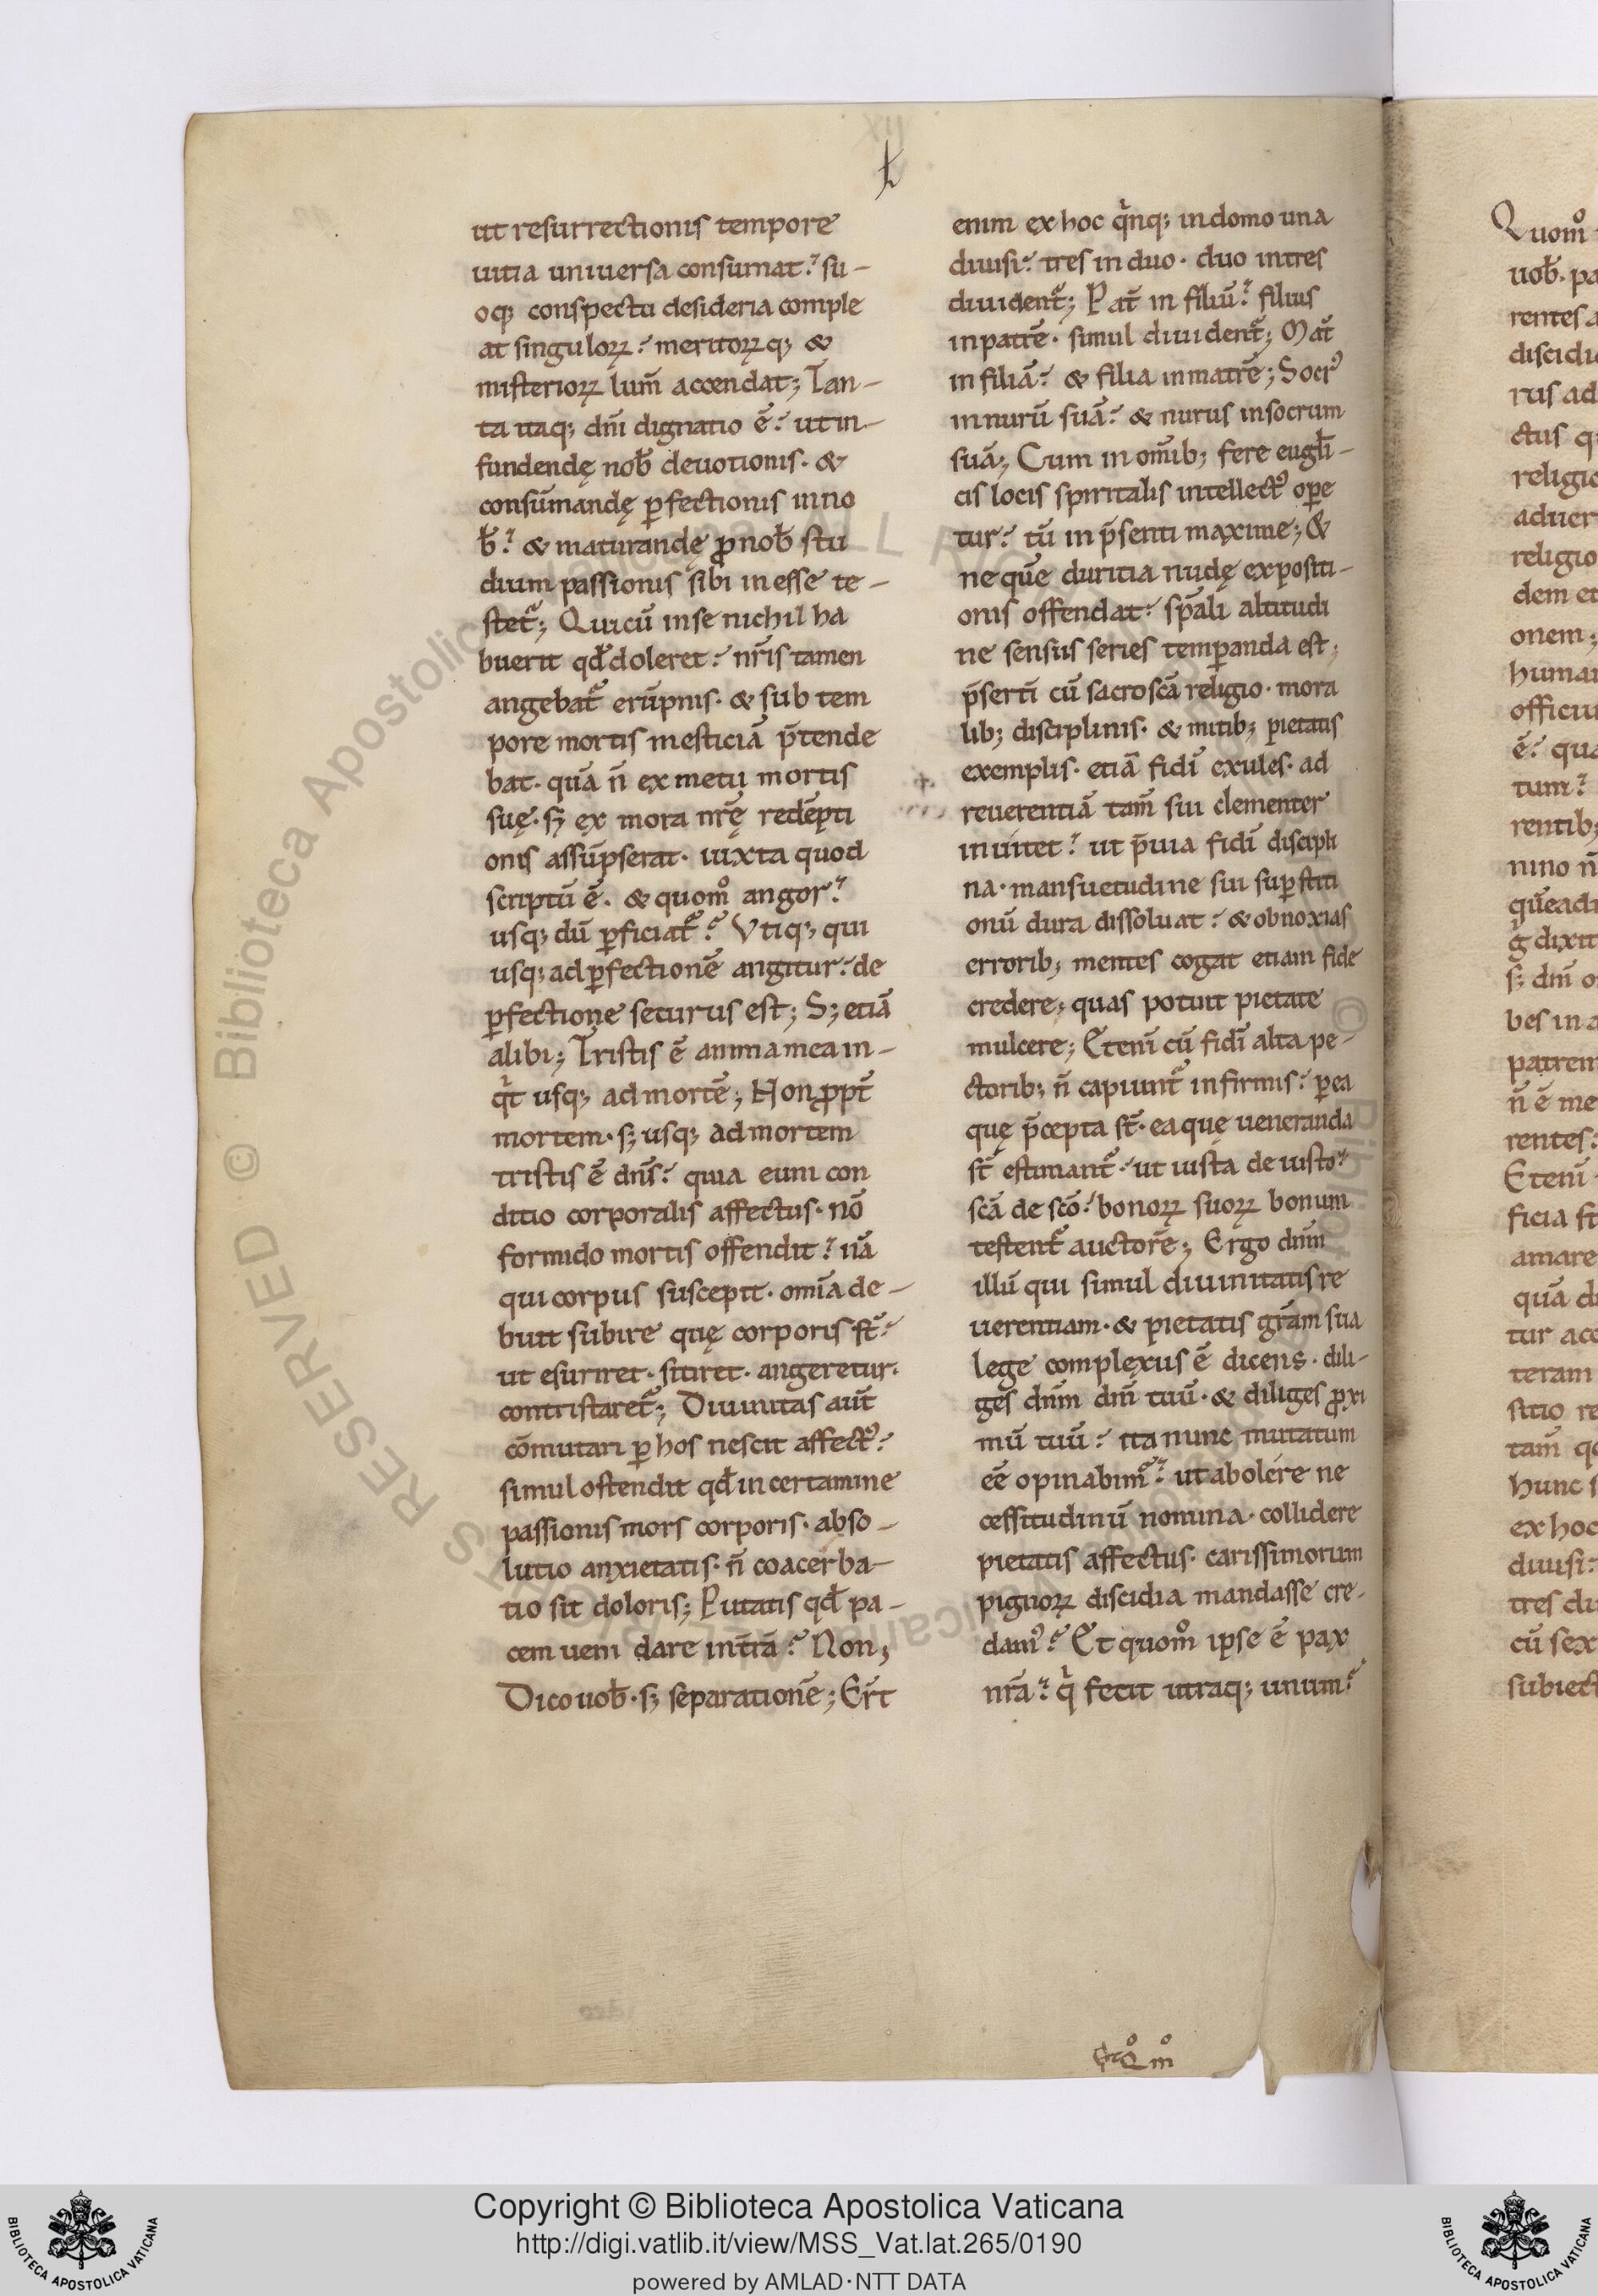 ut resurrectionis tempore
uitia uniuersa consumat? su-
oq; conspectu desideria comple
at singuloꝝ? meritoꝝq; &
misterioꝝ lum̄ accendat; Tan-
ta itaq; dn̄i dignatio ē? ut in-
fundendę nob̄ deuotionis· &
consūmandę ꝑfectionis in no
b̄? & maturandę ꝓ nob̄ stu
dium passionis sibi inesse te-
stet᷑; Qui cū in se nichil ha
buerit qd̄ doleret? nr̄is tamen
angebat᷑ erūpnis· & sub tem
pore mortis mesticiā p̄tende
bat· quā n̄ ex metu mortis
suę· sꝫ ex mora nr̄ę redēpti
onis assūpserat· iuxta quod
scriptū ē· & quom̊ angor?
usq; dū ꝑficiat᷑? Vtiq; qui
usq; ad ꝑfectionē angitur? de
ꝑfectione securus est; Sꝫ etiā
alibi; Tristis ē anima mea in-
q̇t usq; ad mortē; Non ꝓpt̄
mortem· sꝫ usq; ad mortem
tristis ē dn̄s? quia eum con
ditio corporalis affectus· nō
formido mortis offendit? nā
qui corpus suscepit· om̄ia de-
buit subire quę corporis st̄?
ut esuriret· sitiret· angeretur·
contristaret᷑; Diuinitas aūt
cōmutari ꝑ hos nescit affect᷒?
simul ostendit qd̄ in certamine
passionis mors corporis· abso-
lutio anxietatis· n̄ coacerba-
tio sit doloris; Putatis qd̄ pa-
cem ueni dare in tr̄ā? Non;
Dico uob̄· sꝫ separationē; Er̄t
enim ex hoc q̇nq; in domo una
diuisi? tres in duo· duo in tres
diuident᷑; Pat̄ in filiū? filius
in patrē· simul diuident᷑; Mat̄
in filiā? & filia in matrē; Socr᷒
in nurū suā? & nurus in socrum
suā; Cum in om̄ib; fere eugl̄i-
cis locis spiritalis intellect᷒ oꝑe
tur? tū in p̄senti maxime; &
ne quē duritia nudę expositi-
onis offendat? sp̄ali altitudi
ne sensus series temꝑanda est;
p̄serti cū sacrosc̄a religio· mora
lib; disciplinis· & mitib; pietatis
exemplis· etiā fidī exules· ad
reuerentiā tam̄ sui clementer
inuitet? ut p̄uia fidī discipli
na· mansuetudine sui suꝑstiti
onū dura dissoluat? & obnoxias
errorib; mentes cogat etiam fide
credere; quas potuit pietate
mulcere; Etenī cū fidī alta pe-
ctorib; n̄ capiunt᷑ infirmis? ꝑ ea
quę p̄cepta st̄· ea quę ueneranda
st̄ estimant᷑? ut iusta de iusto?
sc̄ā de sc̄o? bonoꝝ suoꝝ bonum
testent᷑ auctorē; Ergo dn̄m
illū qui simul diuinitatis re
uerentiam· & pietatis gr̄am sua
lege complexus ē dicens· dili-
ges dn̄m dm̄ tuū· & diliges ꝓxi
mū tuū? ita nunc mutatum
eē opinabim᷒? ut abolere ne
cessitudinū nomina· collidere
pietatis affectus· carissimorum
pignoꝝ discidia mandasse cre-
dam᷒? Et quom̊ ipse ē pax
nr̄a? q̇ fecit utraq; unum?
Et Q̊ m̊
Quom̊
uob̄· pa
rentes a
discidi
rus ad
ctus q
religio
aduer
religio
dem et
onem;
human
officiu
ē? qua
tum?
rentib;
nino n̄
quēad
g̊ dixit
sꝫ dm̄ o
bes in a
patrem
n̄ ē me
rentes?
Etenī
ficia st
amare
quā di
tur acc
teram
sitio re
tam̄ qd
hunc s
ex hoc
diuisi?
tres du
cū sex
subiect
Copyright © Biblioteca Apostolica Vaticana
http://digi.vatlib.it/view/MSS_Vat.lat.265/0190
powered by AMLAD·NTT DATA
BIBLIOTECA APOSTOLICA VATICANA
BIBLIOTECA APOSTOLICA VATICANA